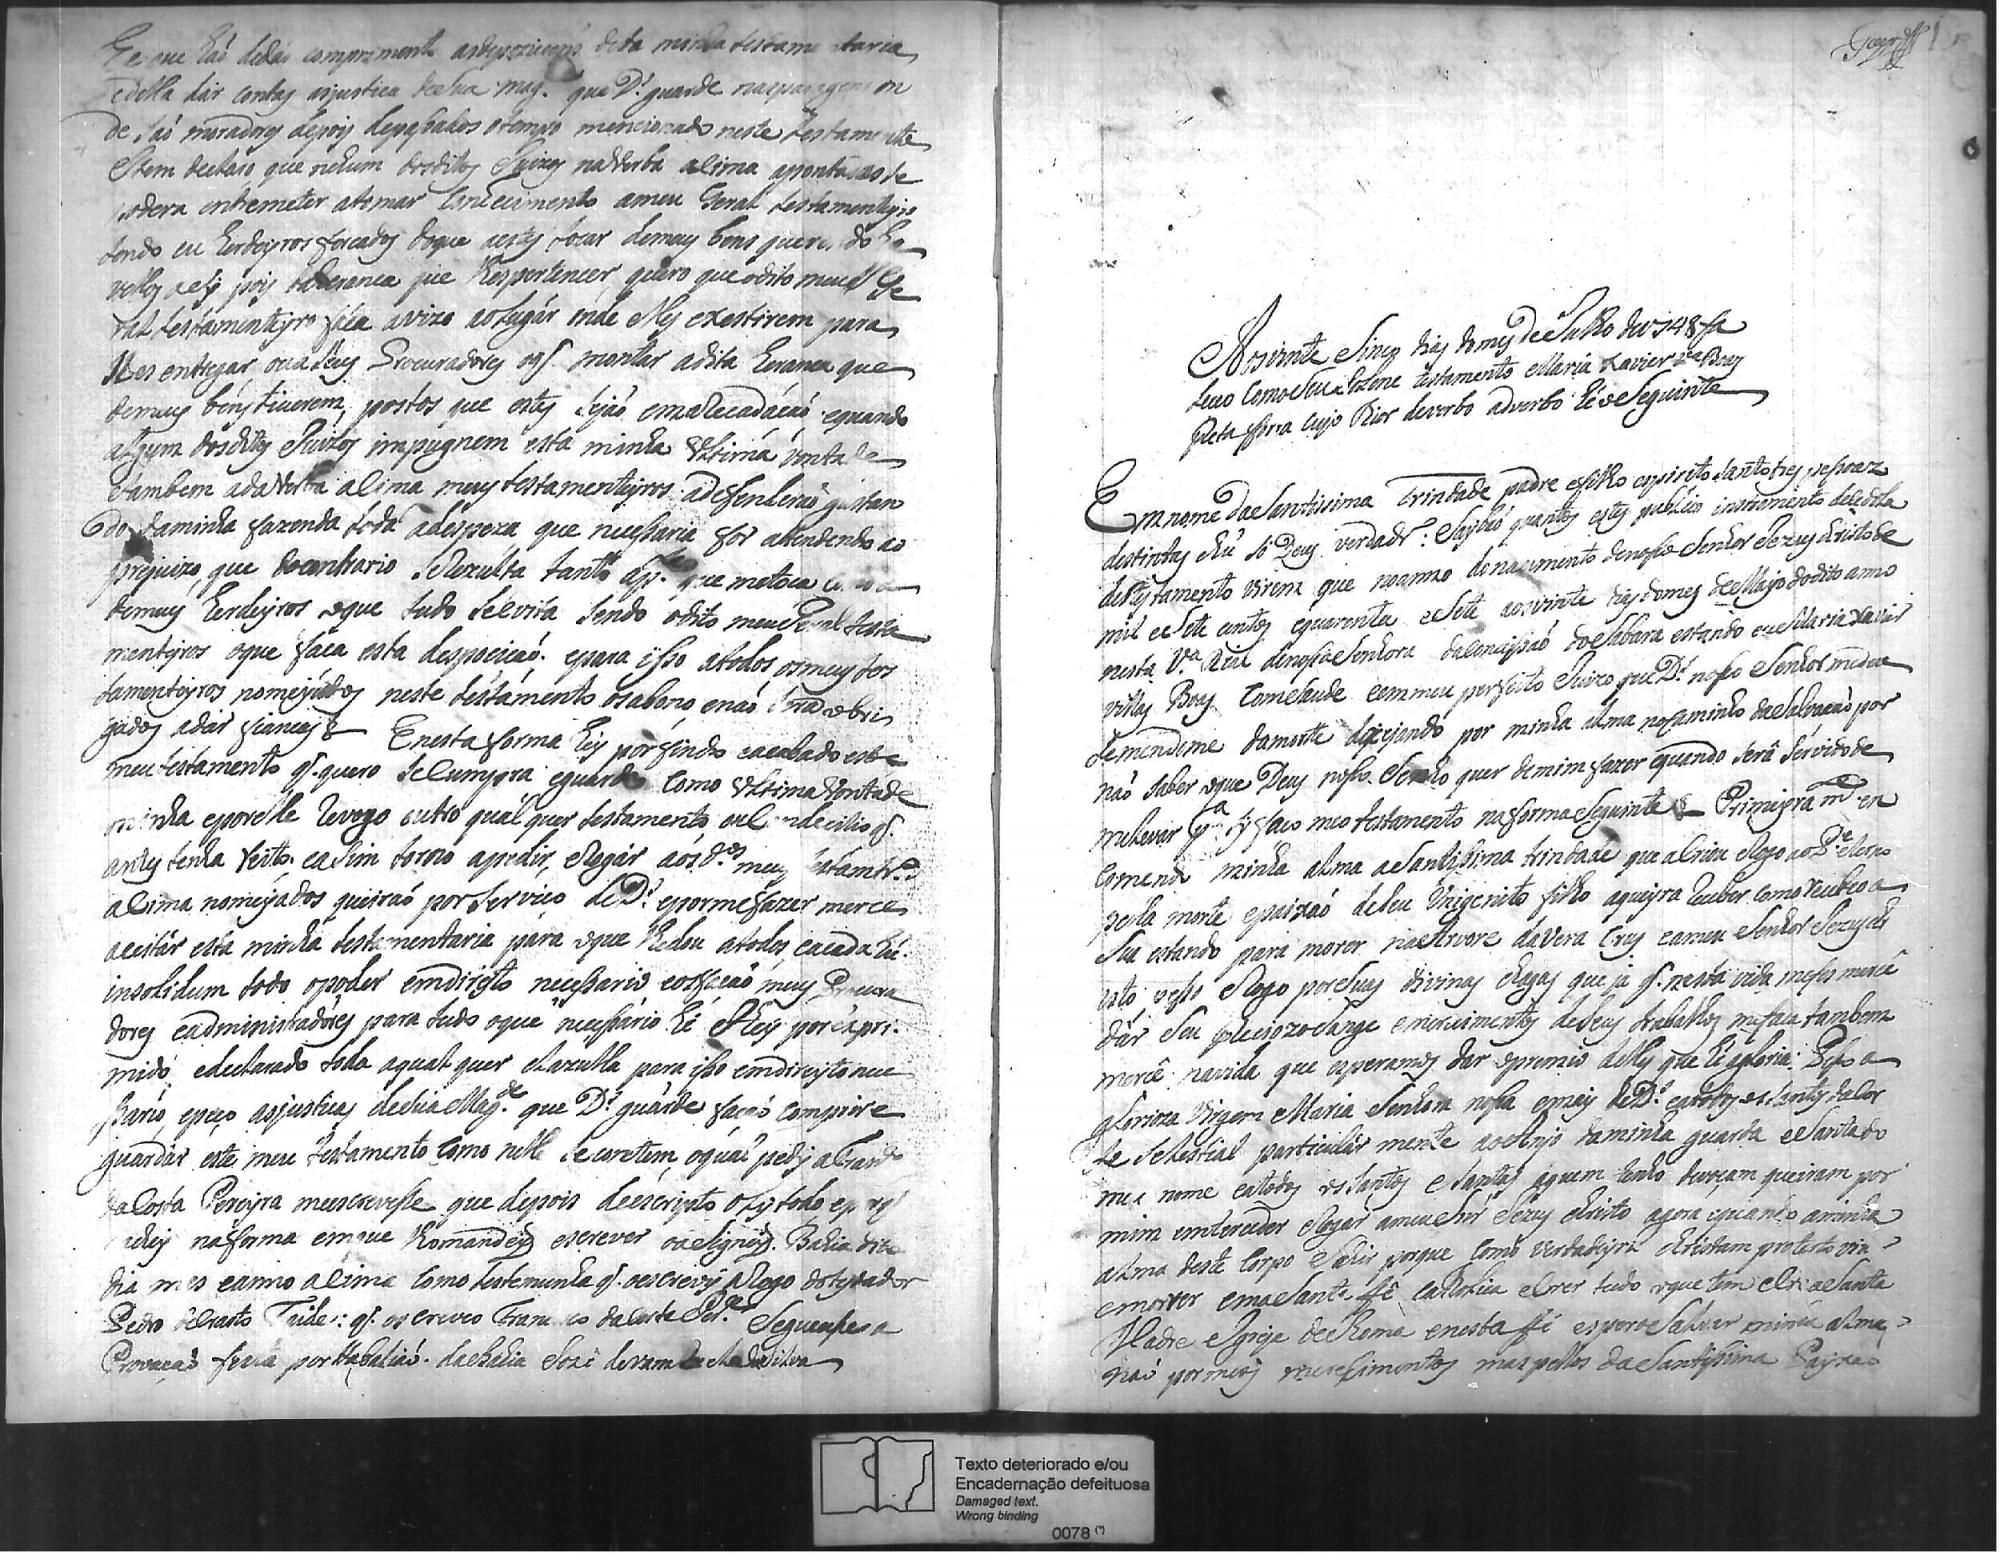 que hão dedar comprimento asdespoziçoens desta minha testamentaria
edella dar contas ajustiça desua mag.e que D.s guarde nasparagens on
de são moradores depois depassados otempo mencionado neste testamento
Item declaro que nehum dosditos Juizos naverba asima apontados se
podera entremeter atomar conhecimento ameu Geral testamenteyro
tendo eu herdeyros forcados doque aestes tocar demeus bens querendo ha
velles asy pois taherança que lhespertencer quero que odito meu Ge
ral testamenteyro faça avizo aolugar onde elles existirem para
lhes entregar ou aseus Procuradores oq. montar adita herança que
demeus bens tiverem, postos que estes sejão emarecadação, equando
algum dosditos Juizos impugnem esta minha ultima vontade
etambem adaverba asima meus testamenteyros adefenderão gastan
do daminha fazenda toda adespeza que necessaria for atendendo ao
prejuizo que docontrario seRezulta tanto apr. que metoca como a
demeus herdeyros oque tudo seevita sendo odito meu Geral testa
menteyros oque faça esta despocicão. epara isso atodos osmeus tes
tamenteyros nomeyados neste testamento osabono enaó serão obri
gados adar fianças & Enesta forma hey porfindo eacabado este
meu testamento q. quero secumpra eguarde como ultima vontade
minha eporelle Revogo outro qualquer testamento ou Condecilio q.
antes tenha feito. easim torno apedir, eRogar aos d.os meus testamtr.os
asima nomeyados queiraó porserviço deD.s epormefazer merce
aceitar esta minha testamentaria para oque lhedou atodos ecada hú.
insolidum todo opoder emdireyto necessario eosfaço meus Procura
dores eadministradores para tudo oque necessário hé ehey porexpri.
mido, edeclarado toda aqualquer clazulla para isso emdireyto nece
ssario, epeço asjustiças desua Mag.de que D.s guarde façaó comprir e
guardar este meu testamento como nelle secontem, oqual pedy aFrancisco
daCosta Pereyra meescrevesse que depois deescripto oly todo e
naforma emque lhomandey escrever oasigney. Bahia dito
dia mes eanno asima Como testemunha q. oescrevy aRogo dotestador
Pedro : q. oescreveo Francisco daCosta Per.ra Segueasea
Provação feita portabaliaó. daBahia Jozé daSilva
Aosvinte esinco dias domes deJulho de1748 fa
leceo Comoseu eSolene testamento Maria Xavier Vas Boas
preta forra cujo theor deverbo adverbo hé oSeguinte
Em nome daeSantissima Trindade padre efilho espirito Santo tres pessoaz
destintas hú só Deus verdadr.: Saybáo quantos este publico instromento desedola
deTestamento virem que noanno donacimento denosso Senhor Jezus christo de
mil eSete centos equarenta eSete aosvinte dias domes deMayo dodito anno
nesta V.a Real denossaSenhora daConceissáo doSabara estando eu Maria Xavier
villas Boas ComeSaude eemmeu perfeito Juizo que D.s nosso Senhor medeu
temendome damorte dezejando por minha alma nocaminho daeSalvacaó por
não saber oque Deus nosso Senhor quer demim fazer equando será Servido de
melevar p.a sy faço meo testamento naformaSeguinte & Primeyram.te en
comendo minha alma aeSantissima trindade que acriou eRogo ao P.e eterno
pella morte epaixão deSeu Unigenito filho aqueyra receber como recebeo a
Sua estando para morer naeArvore daVera Crus eameu Senhor Jezuschr
isto pesso eRogo porSuas divinas chagas que já q. nesta vida mefes mercê
dár Seu preciozoSange emerecimentos deSeus trabalhos mefaca tambem
mercê navida que esperamos dar opremio delles que heagloria. Peço a
gLorioza Virgem Maria Senhora nossa emay deD.s eatodos os santos daCor
te Selestial particular mente aoeAnjo daminha guarda eSantado
meu nome eatodos os santos eSantas aquem tenho devocam queiram por
mim enterceder eRogar ameu Snr Jezus christo agora equando aminha
alma deste corpo Sahir porque como verdadeyra christam protesto viver
emorrer emaSanta fé catholica ecrer tudo oque tem ecrê aSanta
Madre eIgreja deeRoma enesta fé esperoSalvar minha alma
naó pormeus merecimentos mas pellos daeSantissima Payxaó
Texto deteriorado e/ou
Encadernação defeituosa
Damaged text.
Wrong binding
0078 (*)